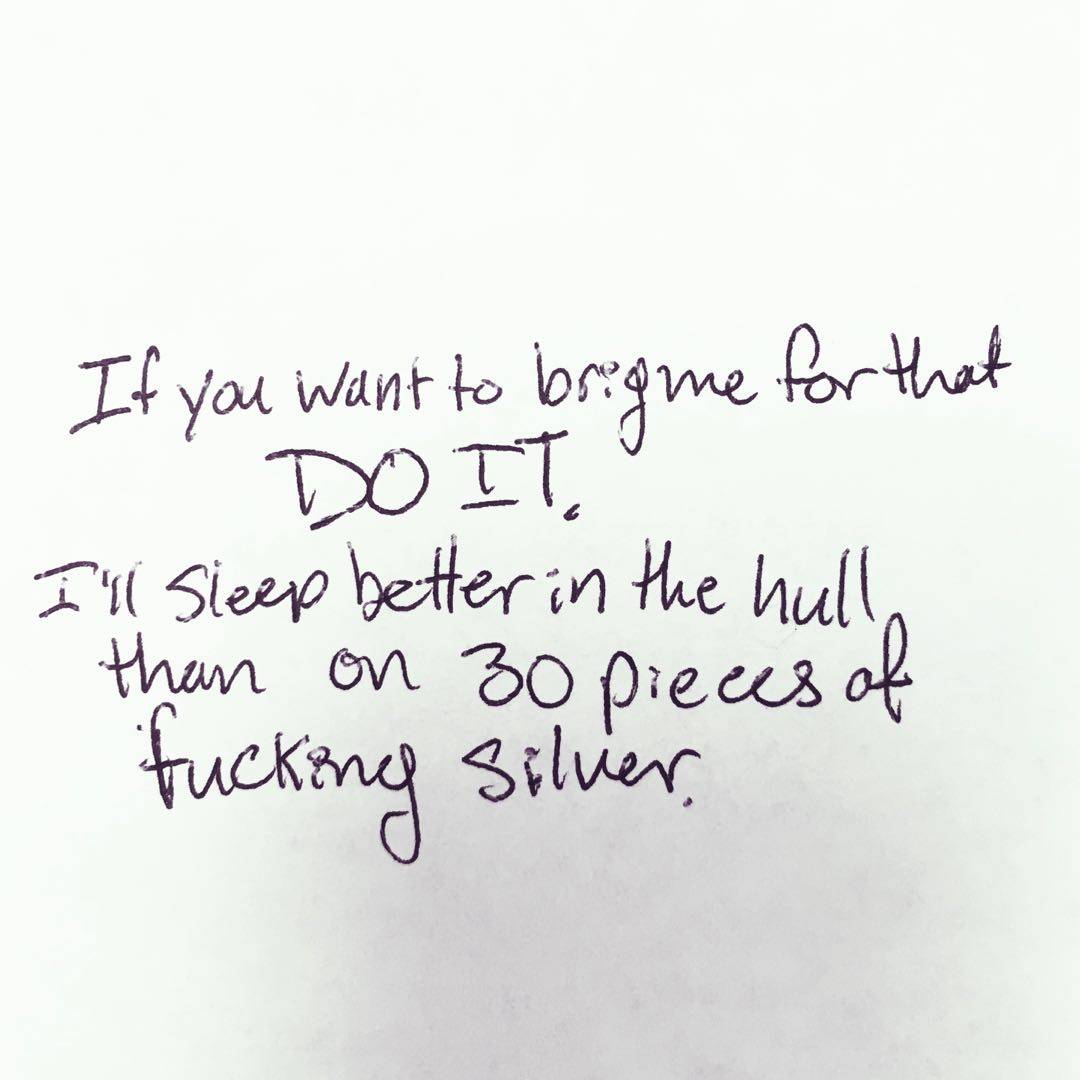 If you want to brig me for that
DO IT.
I'll sleep better in the hull
than on 30 pieces of
fucking silver.